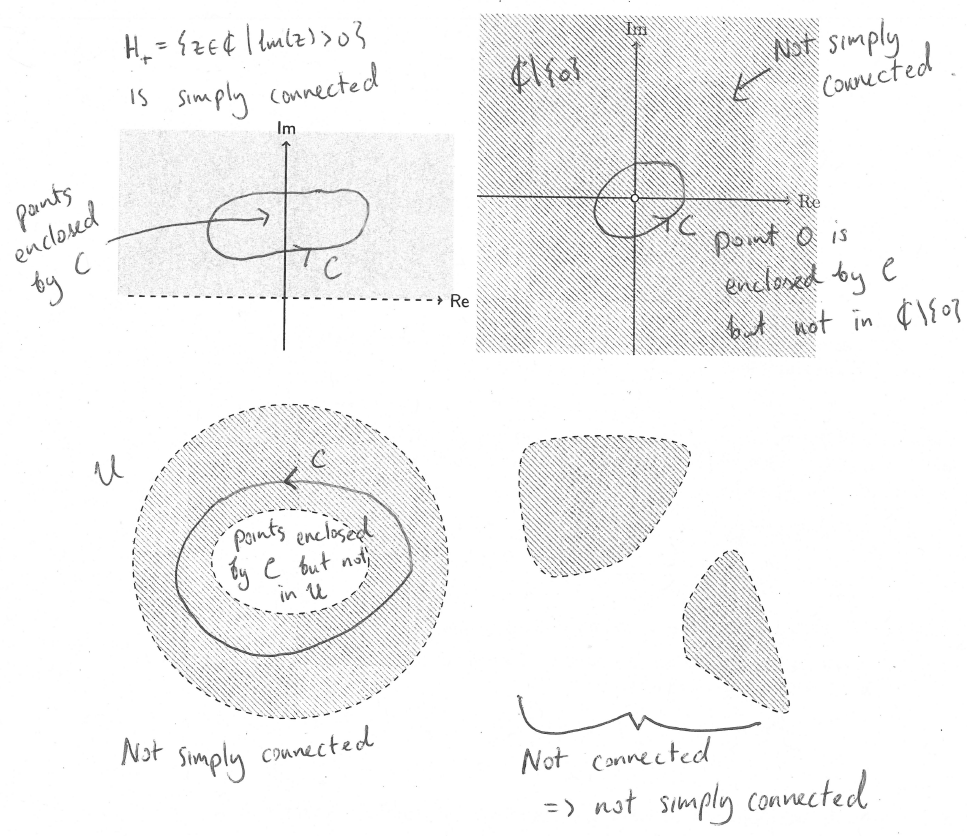 H₊ = {z∈ℂ | Im(z) > 0}
is simply connected
Im
Re
points
enclosed
by C
C
Im
Re
ℂ\{0}
Not simply
connected.
C
point 0 is
enclosed by C
but not in ℂ\{0}
U
C
points enclosed
by C but not
in U
Not simply connected
Not connected
=> not simply connected